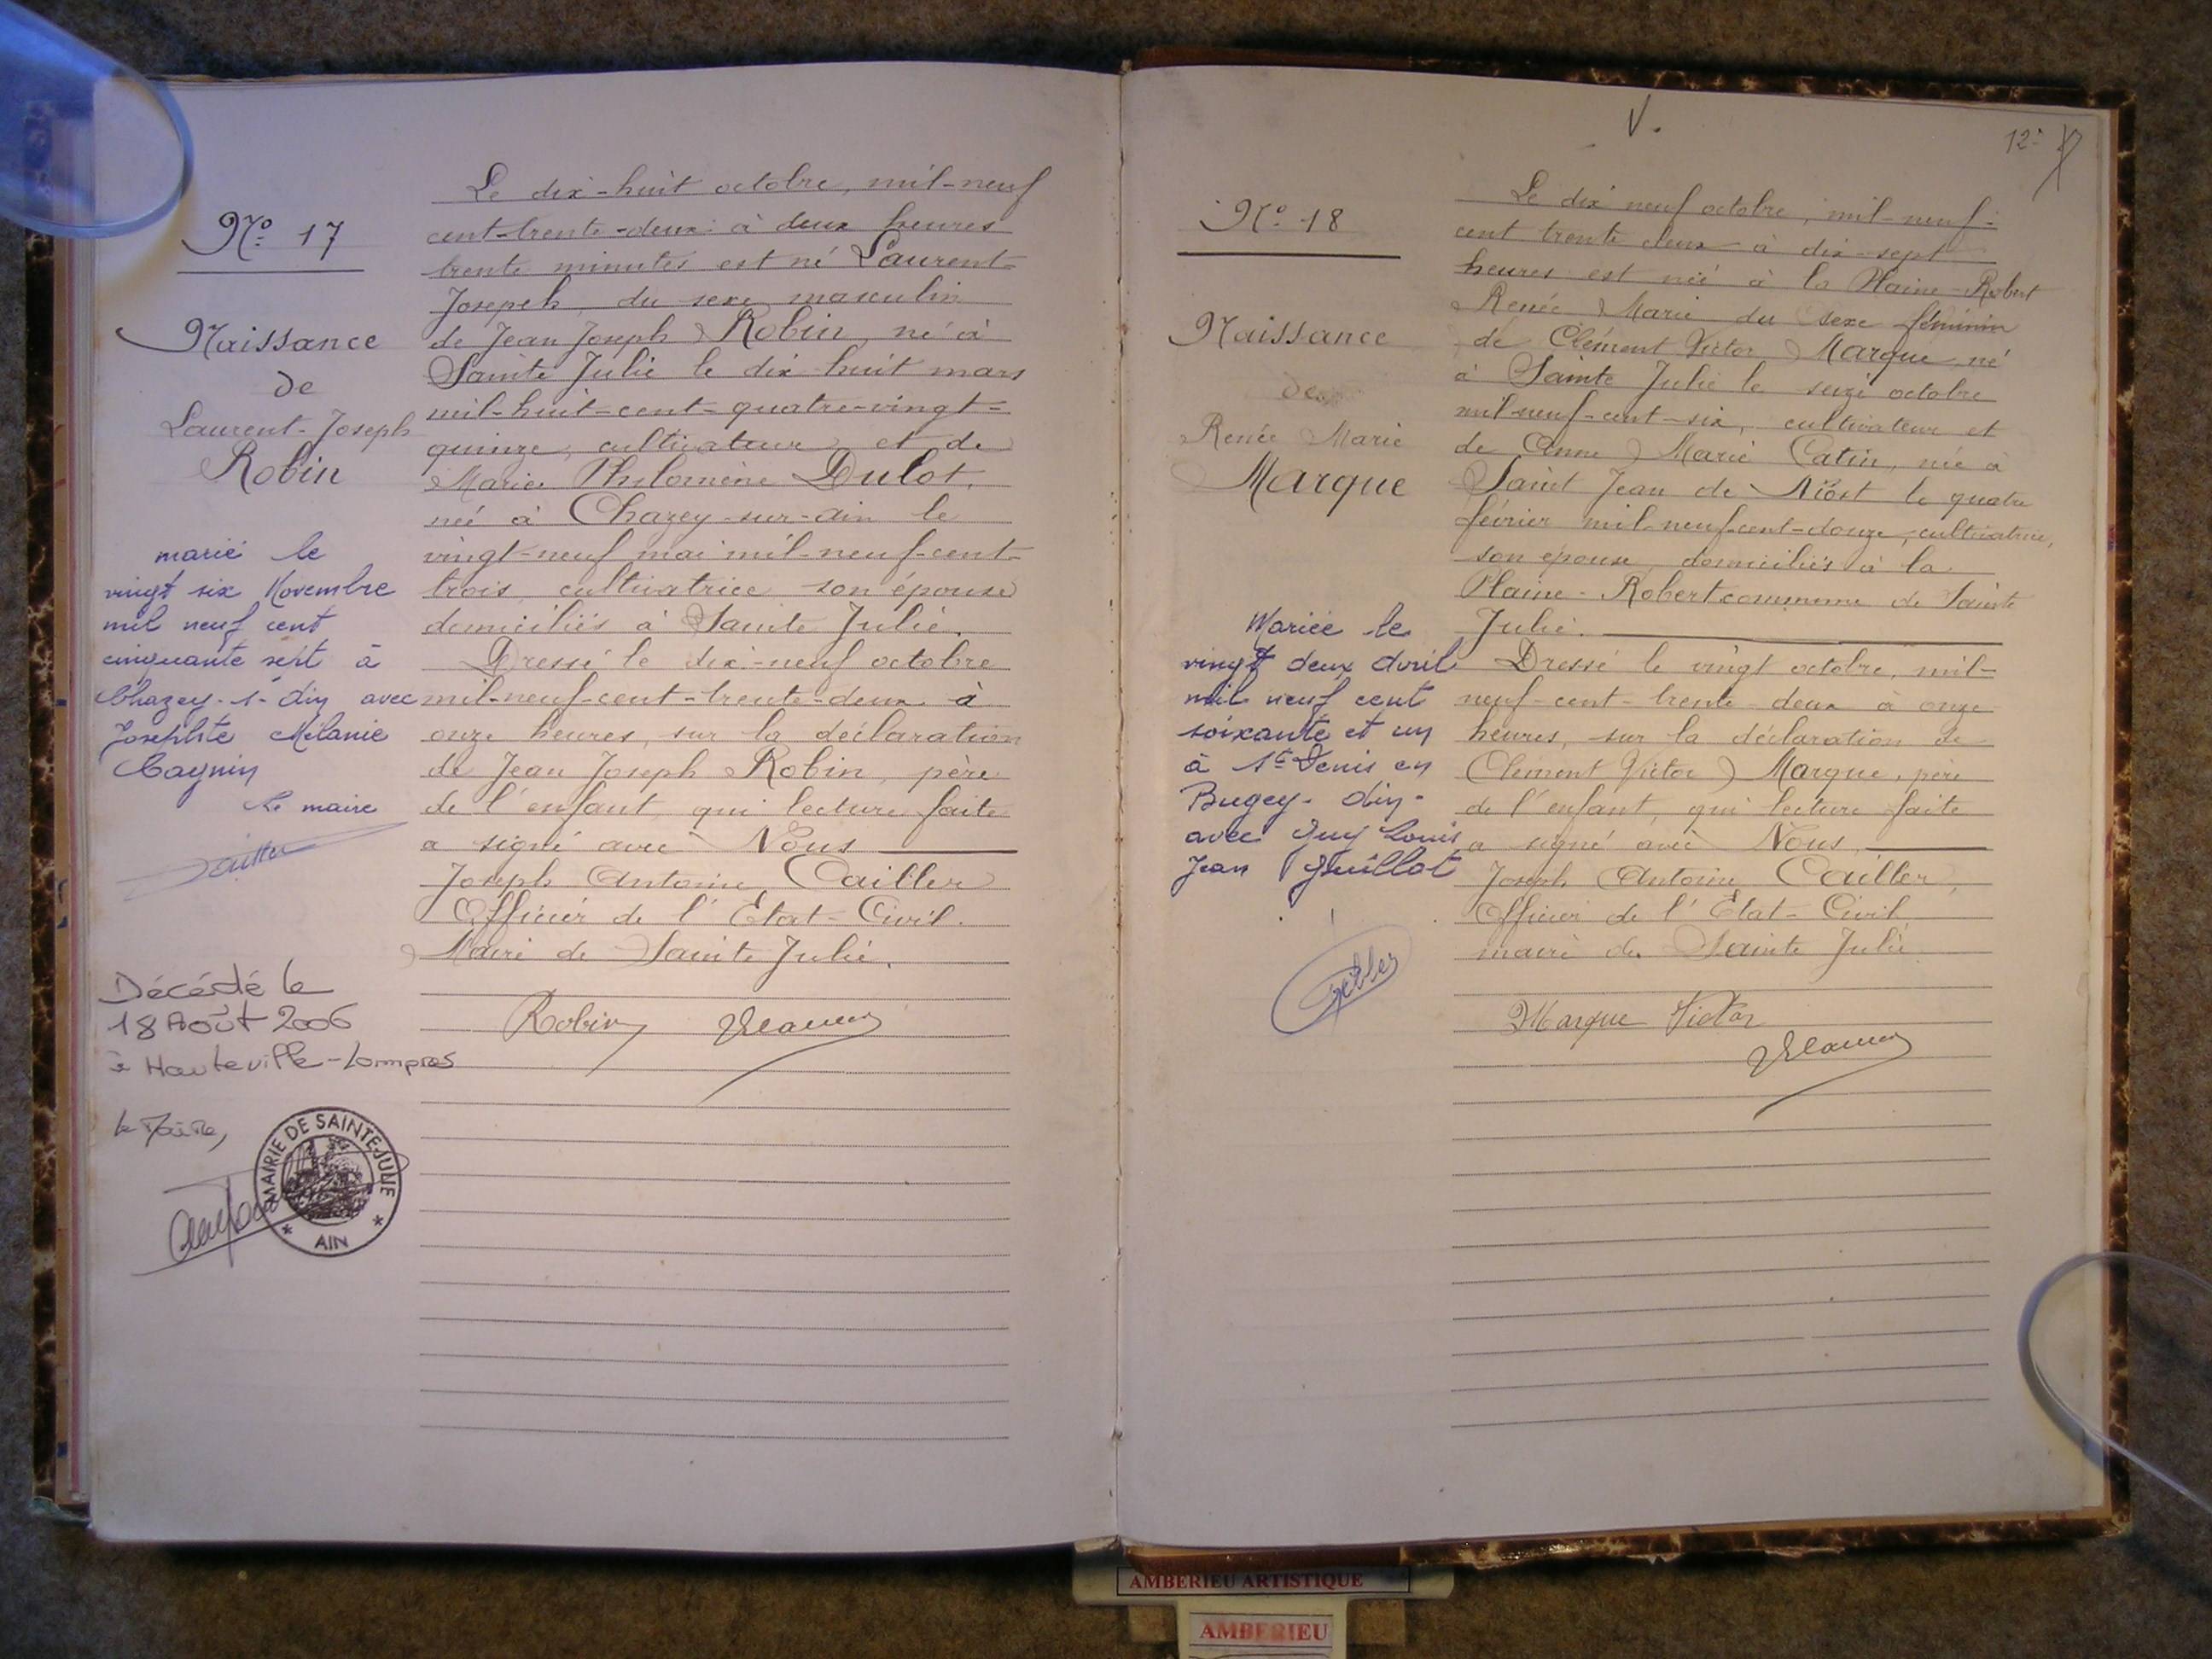 Nº 17
Naissance
de
Laurent-Joseph
Robin
marié le
vingt six Novembre
mil neuf cent
cinquante sept à
Chazey-s-Ain avec
Josephte Mélanie
Cagnin
Le maire
Décédé le
18 Août 2006
à Hauteville-Lompnes
Le Maire,
MAIRIE DE SAINTE-JULIE
* AIN *
Le dix-huit octobre, mil-neuf
cent-trente-deux à deux heures
trente minutes est né Laurent-
Joseph, du sexe masculin
de Jean Joseph Robin, né à
Sainte Julie le dix huit mars
mil-huit-cent-quatre-vingt-
quinze, cultivateur et de
Marie Philomène Dulot,
née à Chazey-sur-Ain le
vingt-neuf mai mil-neuf-cent-
trois, cultivatrice son épouse
domiciliés à Sainte Julie.
Dressé le dix-neuf octobre
mil-neuf-cent-trente-deux à
onze heures, sur la déclaration
de Jean Joseph Robin, père
de l'enfant, qui lecture faite
a signé avec Nous
Joseph Antoine Cailler
Officier de l'Etat-Civil.
Maire de Sainte Julie.
Robin
V.
12
Nº 18
Naissance
de
Renée Marie
Marque
Mariée le
vingt deux Avril
mil neuf cent
soixante et un
à St Denis en
Bugey-Ain-
avec Guy Louis
Jean Guillot
Le dix neuf octobre, mil-neuf-
cent trente deux à dix-sept
heures est née à la Plaine-Robert
Renée Marie du sexe féminin
de Clément Victor Marque, né
à Sainte Julie le seize octobre
mil-neuf-cent-six, cultivateur et
de Anne Marie Catin, née à
Saint Jean de Niost le quatre
février mil-neuf-cent-douze, cultivatrice,
son épouse, domiciliés à la
Plaine-Robert commune de Sainte
Julie.
Dressé le vingt octobre, mil-
neuf-cent-trente-deux à onze
heures, sur la déclaration de
Clément Victor Marque, père
de l'enfant, qui lecture faite
a signé avec Nous
Joseph Antoine Cailler,
Officier de l'Etat-Civil
maire de Sainte Julie
Marque Victor
AMBERIEU ARTISTIQUE
AMBERIEU